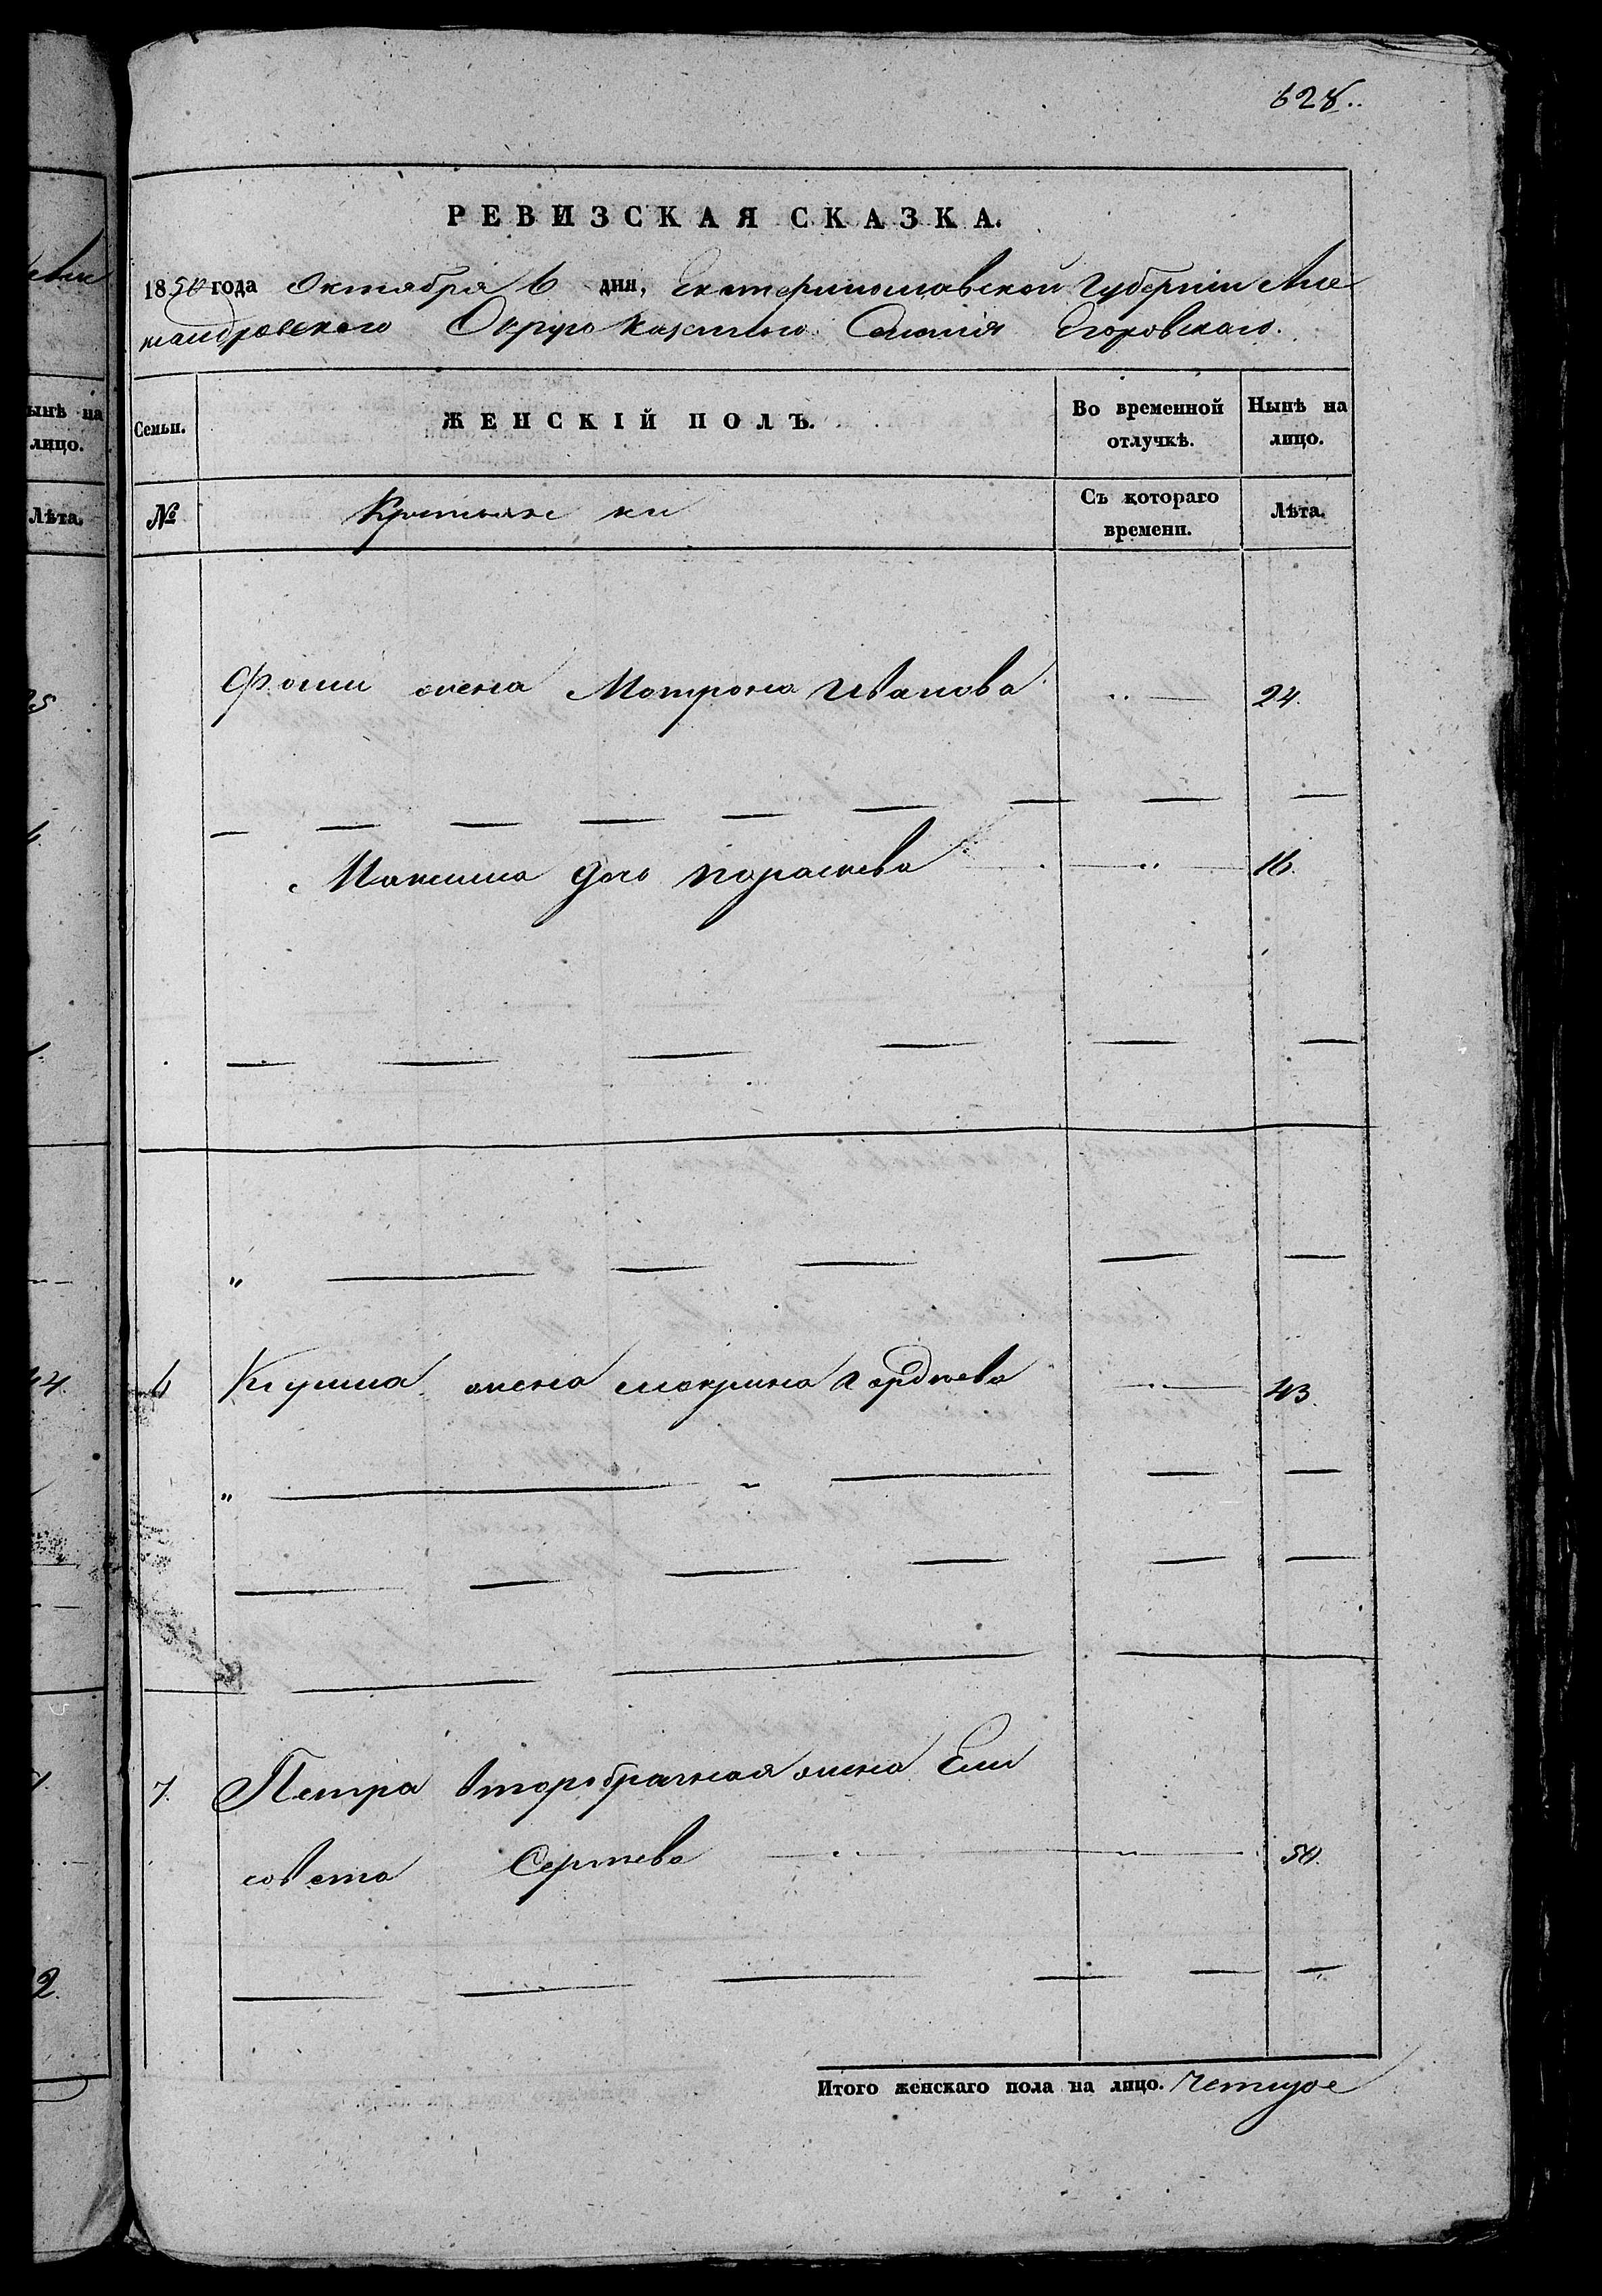 628.
РЕВИЗСКАЯ СКАЗКА.
1850 года Октября 6 дня, Екатеринославской Губернии Але
ксандровского Округа казенного Селения Егоровскаго.
Семьи.
ЖЕНСКІЙ ПОЛЪ.
Во временной отлучкѣ.
Нынѣ на лицо.
№
Крестьянс ки
Съ котораго времени.
Лѣта.
Фомы жена Матрона Иванова 24.
Максима дочь Параскева 16.
6 Кузьма жена Макрина Гордѣева 43.
7. Петра второбрачная жена Ели
савета Сергѣева 50.
Итого женскаго пола на лицо. Четыре
ынѣ на
лицо.
Лѣта.